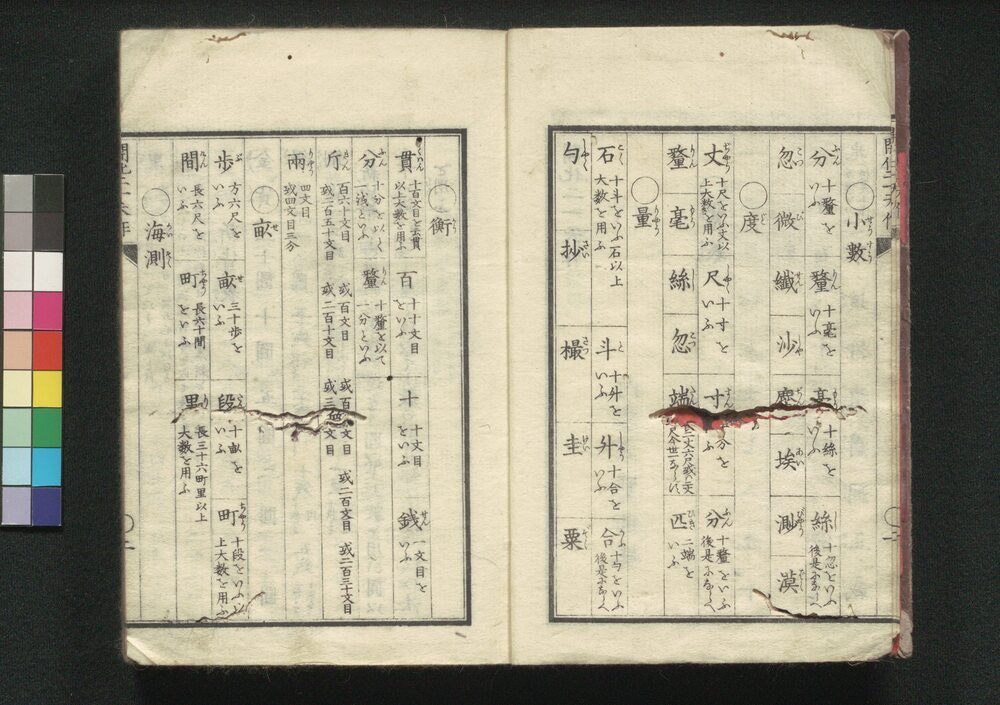 ○小數
分 十釐を いふ 釐 十毫を いふ 毫 十絲を いふ 絲 十忽をいふ 後是にならへ
忽 微 纖 沙 塵 埃 渺 漠
○度
丈 十尺をいふ丈以 上大數を用ふ 尺 十寸を いふ 寸 分を ふ 分 十釐をいふ 後是にならへ
釐 毫 絲 忽 端 匹 二端を いふ
○量
石 十斗をいふ石以上 大數を用ふ 斗 十升を いふ 升 十合を いふ 合 十勺をいふ 後是にならへ
勺 抄 撮 圭 粟
○衡
貫 千百文目を云貫 以上大數を用ふ 百 十十文目 をいふ 十 十文目 をいふ 錢 一文目を いふ
分 十分を以て 一錢といふ 釐 十釐を以て 一分といふ
斤 百六十文目 或二百五十文目 或百文目 或二百十文目 或百 文目 或三 文目 或二百文目 或二百三十文目
兩 四文目 或四文目三分
○畝
歩 方六尺を いふ 畝 三十歩を いふ 段 十畝を いふ 町 十段をいふ以 上大數を用ふ
間 長六尺を いふ 町 長六十間 をいふ 里 長三十六町里以上 大數を用ふ
○海測